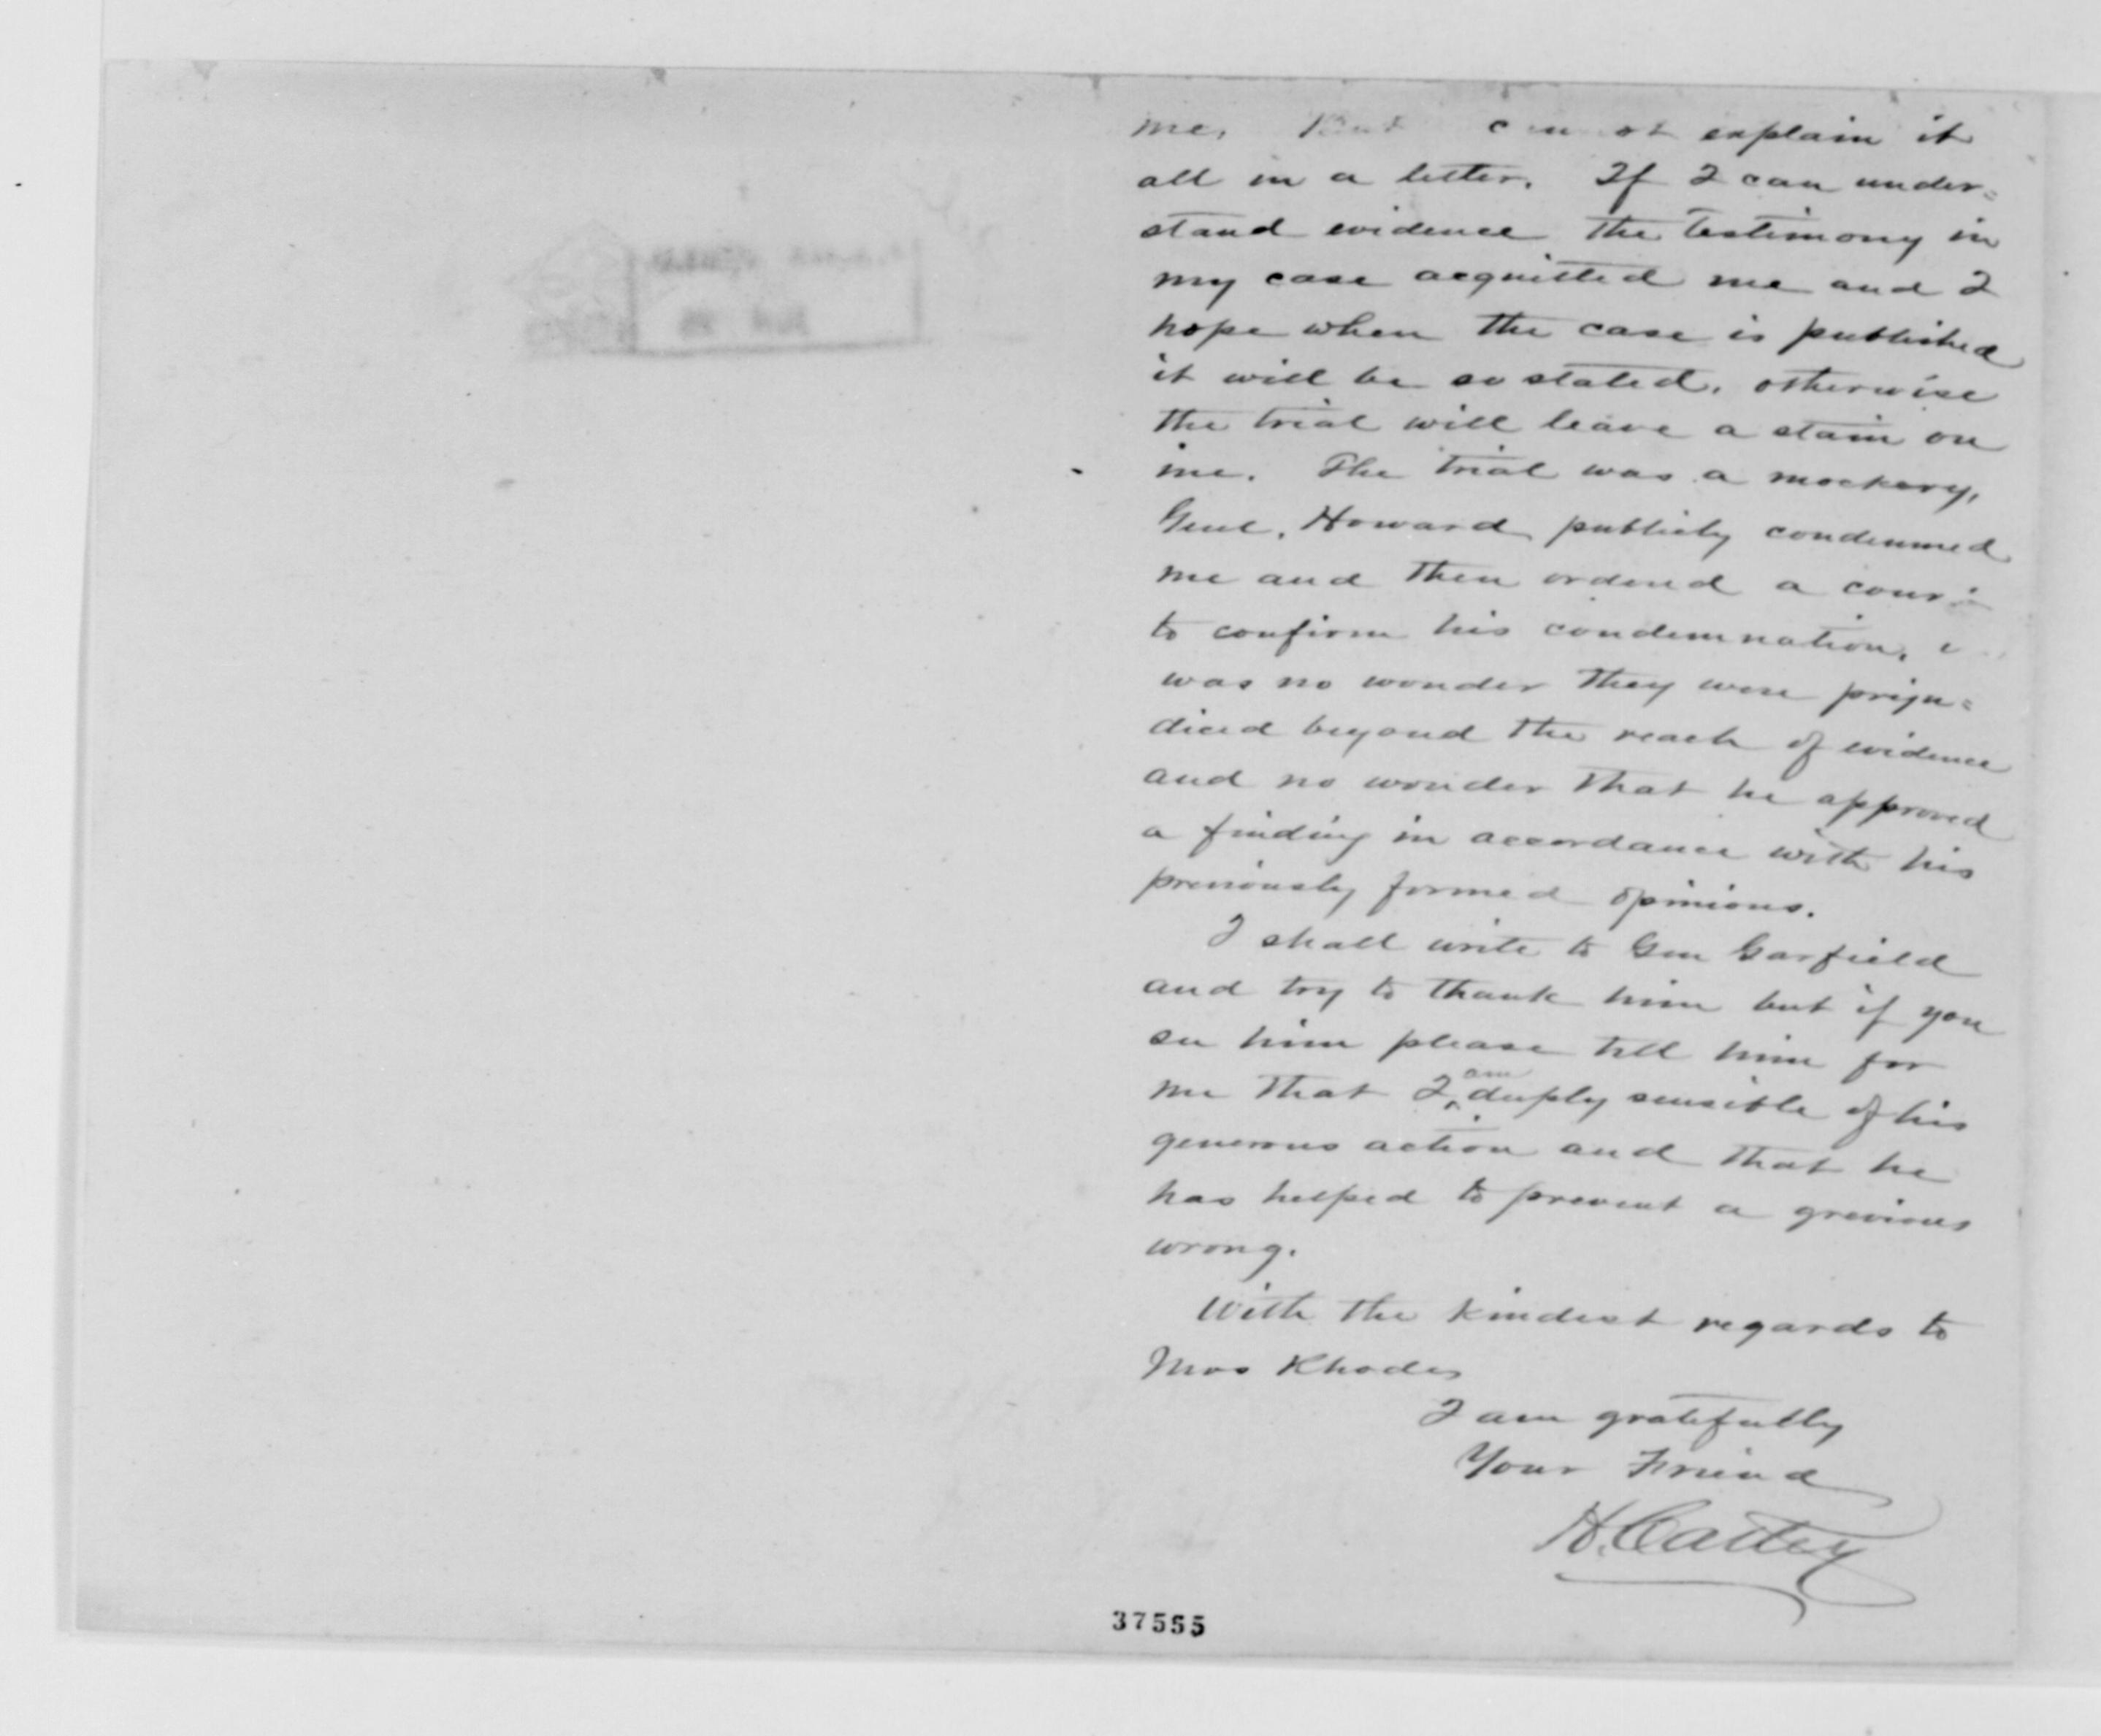 me, But cannot explain it
all in a letter. If I can under=
stand evidence the testimony in
my case acquitted me and I
hope when the case is published
it will be so stated, otherwise
the trial will leave a stain on
me. The trial was a mockery,
Genl. Howard publicly condemned
me and then orderd a court
to confirm his condemnation,
was no wonder they were preju=
diced beyond the reach of evidence
and no wonder that he approved
a finding in accordance with his
previously formed opinions.
I shall write to Gen Garfield
and try to thank him but if you
see him please tell him for
me that I am deeply sensible of his
generous action and that he
has helped to prevent a grevious
wrong.
With the kindest regards to
Mrs Rhodes
I am gratefully
Your Friend
H. Catley
37555